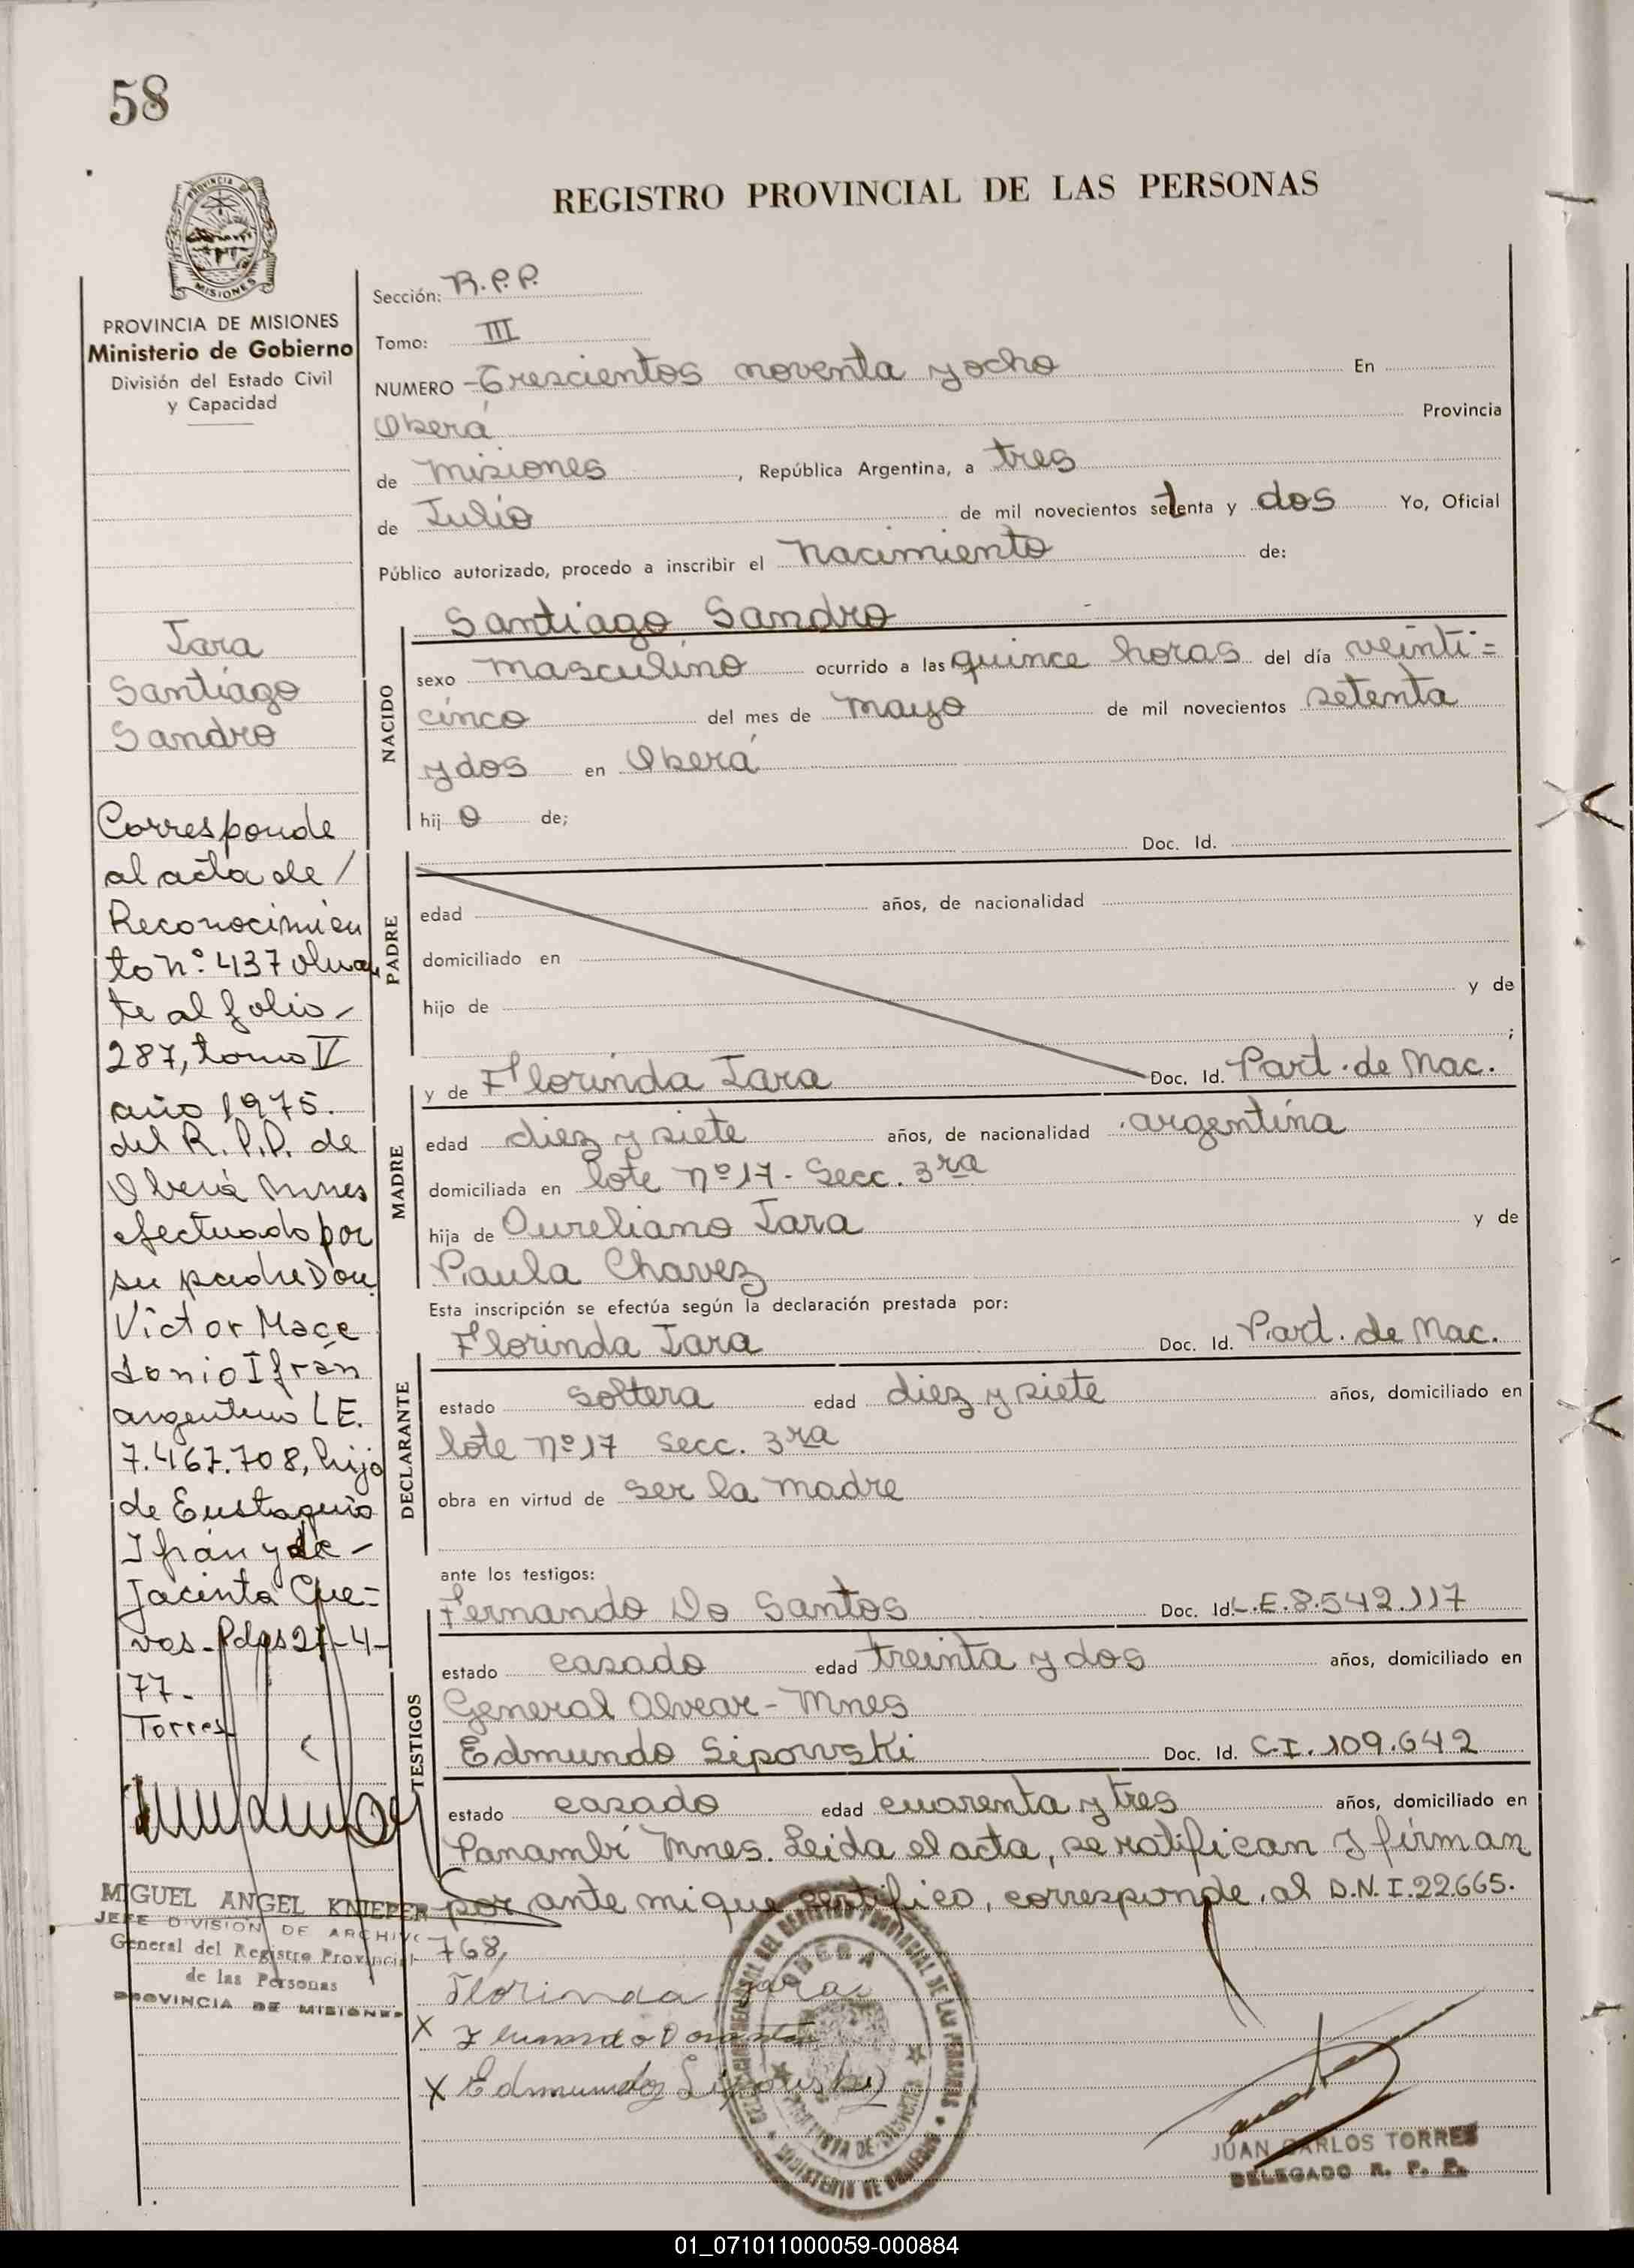 58
REGISTRO PROVINCIAL DE LAS PERSONAS
PROVINCIA
MISIONES
PROVINCIA DE MISIONES
Ministerio de Gobierno
División del Estado Civil
y Capacidad
Sección: R.P.P.
Tomo: III
NUMERO -Trescientos noventa y ocho En
Oberá Provincia
de misiones, República Argentina, a tres
de Julio de mil novecientos setenta y dos Yo, Oficial
Público autorizado, procedo a inscribir el nacimiento de:
Jara
Santiago
Sandro
Corresponde
al acta de /
Reconocimien
to nº 437 obran
te al folio -
287, tomo IV
año 1975.
del R.P.P. de
Oberá Mnes
efectuado por
su padre Don
Victor Mace
donio Ifrán
argentino L.E.
7.467.708, hijo
de Eustaquio
Ifrán y de -
Jacinta Cue=
vas - Pdas 27-4-
77-
Torres
MIGUEL ANGEL KNIEPER
JEFE DIVISION DE ARCHIVO
General del Registro Provincial
de las Personas
PROVINCIA DE MISIONES
NACIDO
Santiago Sandro
sexo masculino ocurrido a las quince horas del día veinti=
cinco del mes de mayo de mil novecientos setenta
y dos en Oberá
hijo de;
PADRE
Doc. Id.
edad años, de nacionalidad
domiciliado en
hijo de y de
;
MADRE
y de Florinda Jara Doc. Id. Part. de Nac.
edad diez y siete años, de nacionalidad argentina
domiciliada en lote nº 17 - Secc. 3ra
hija de Aureliano Jara y de
Paula Chavez
Esta inscripción se efectúa según la declaración prestada por:
DECLARANTE
Florinda Jara Doc. Id. Part. de Nac.
estado soltera edad diez y siete años, domiciliado en
lote nº 17 Secc. 3ra
obra en virtud de ser la madre
ante los testigos:
TESTIGOS
Fernando Do Santos Doc. Id. L.E. 8.542.117
estado casado edad treinta y dos años, domiciliado en
General Alvear - Mnes
Edmundo Sipowski Doc. Id. C.I. 109.642
estado casado edad cuarenta y tres años, domiciliado en
Panambí Mnes. Leida el acta, se ratifican y firman
por ante mi que certifico, corresponde al D.N.I. 22.665.
768,
Florinda Jara
X
X Edmundo Sipowski
OBERA
JUAN CARLOS TORRES
DELEGADO R. P. P.
01_071011000059-000884